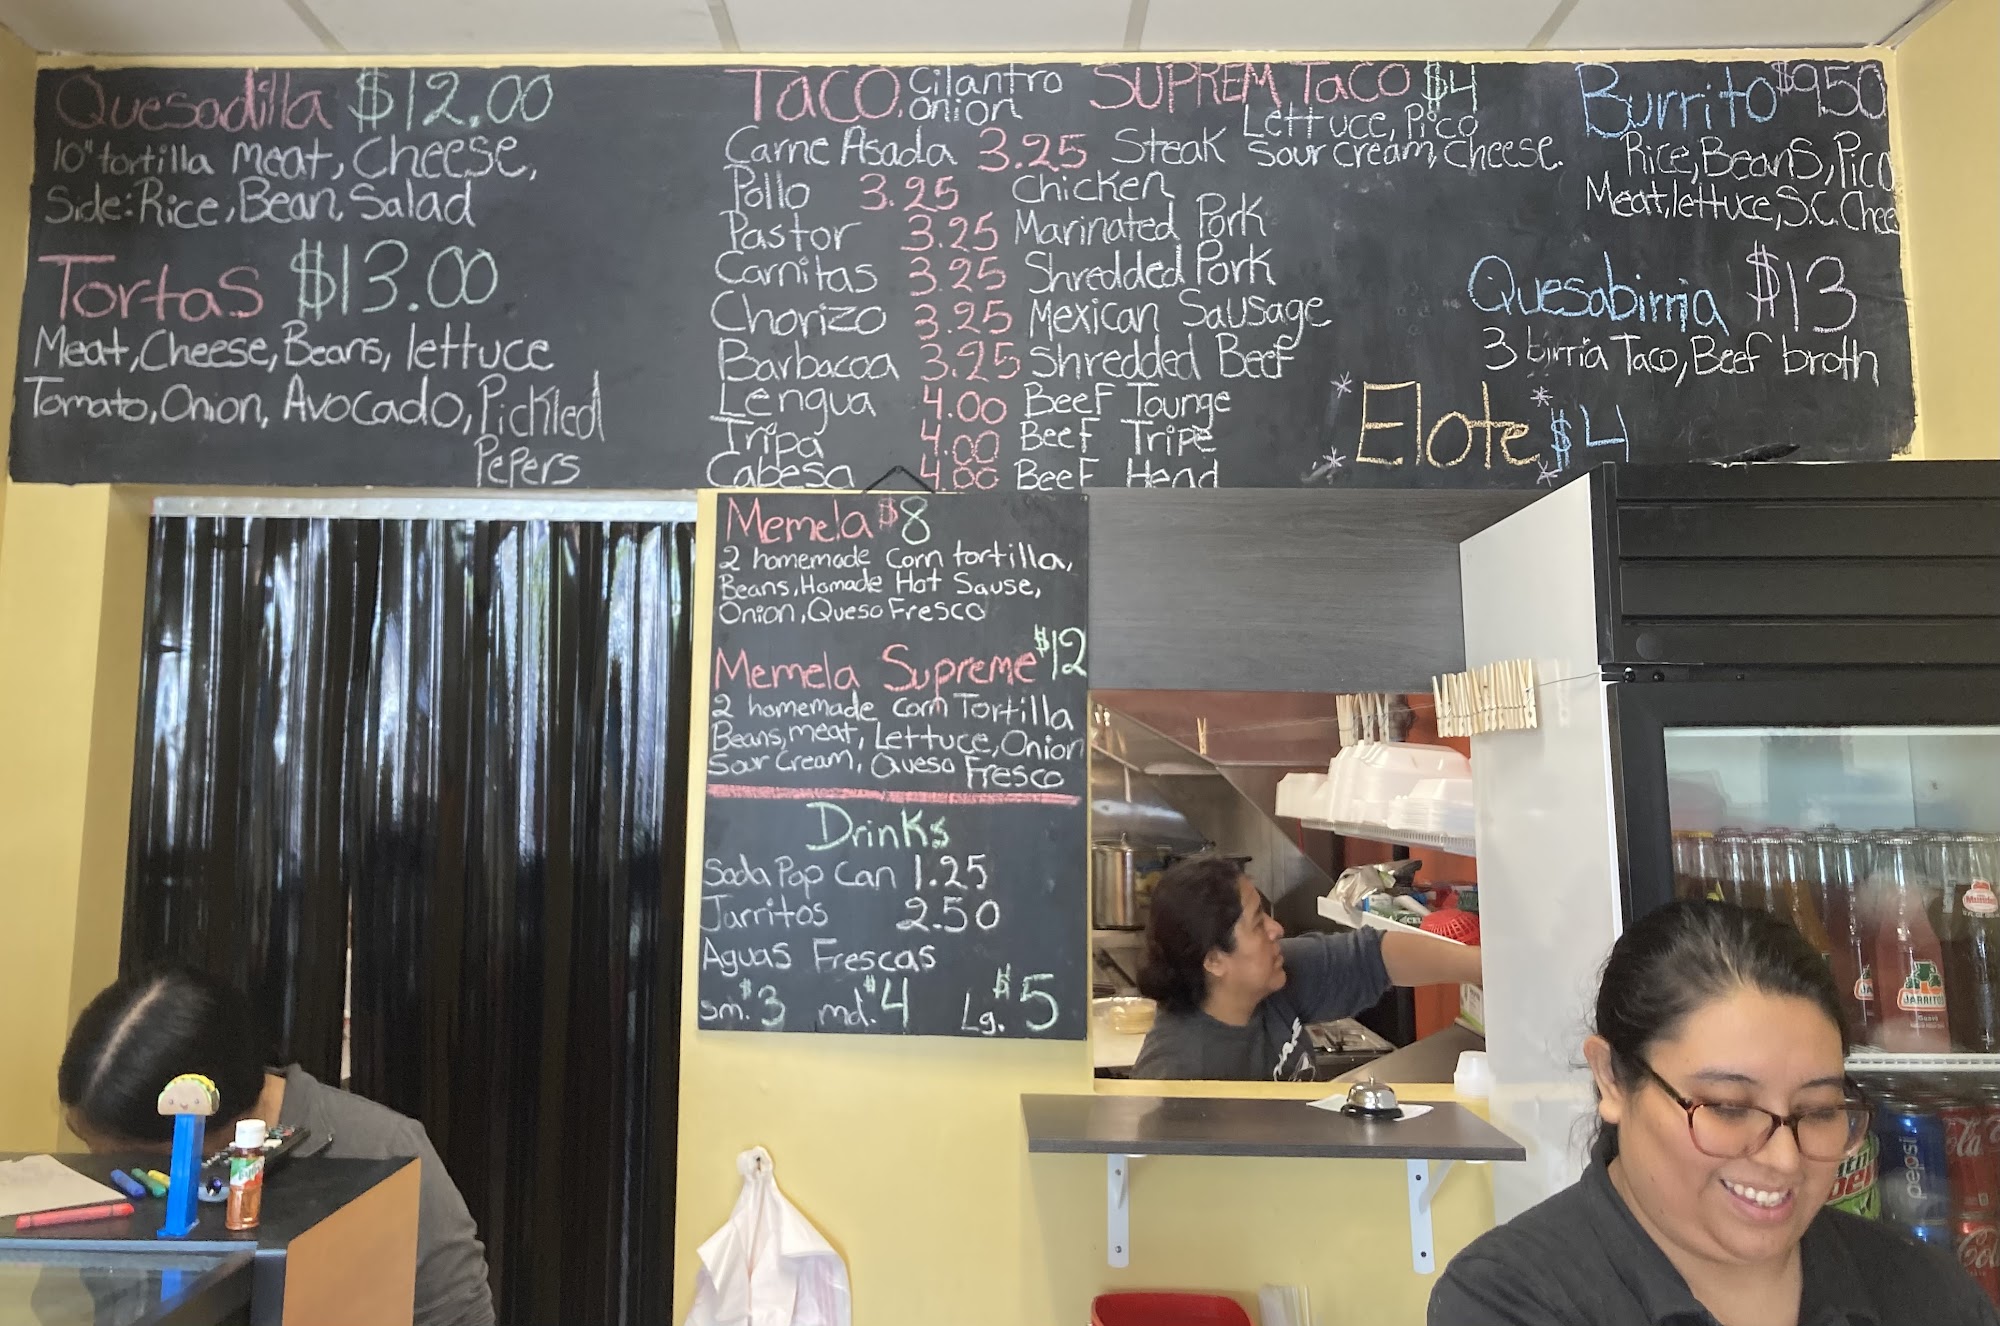 Quesadilla $12.00
10" tortilla meat, Cheese,
Side: Rice, Bean, Salad
Tortas $13.00
Meat, Cheese, Beans, lettuce
Tomato, Onion, Avocado, Pickled
Pepers
Taco. Cilantro
onion
Carne Asada 3.25 Steak
Pollo 3.25 Chicken
Pastor 3.25 Marinated Pork
Carnitas 3.25 Shredded Pork
Chorizo 3.25 Mexican Sausage
Barbacoa 3.25 Shredded Beef
Lengua 4.00 Beef Tounge
Tripa 4.00 Beef Tripe
Cabesa 4.00 Beef Head
SUPREM Taco $4
Lettuce, Pico
Sour cream, cheese.
Burrito $9.50
Rice, Beans, Pico
Meat, lettuce, S.C. Chee
Quesabirria $13
3 birria Taco, Beef broth
*Elote* $4
Memela $8
2 homemade corn tortilla,
Beans, Homade Hot Sause,
Onion, Queso Fresco
Memela Supreme $12
2 homemade corn Tortilla
Beans, meat, Lettuce, Onion
Sour Cream, Queso Fresco
Drinks
Soda Pop Can 1.25
Jarritos 2.50
Aguas Frescas
sm. $3 md. $4 Lg. $5
JARRITOS
pepsi